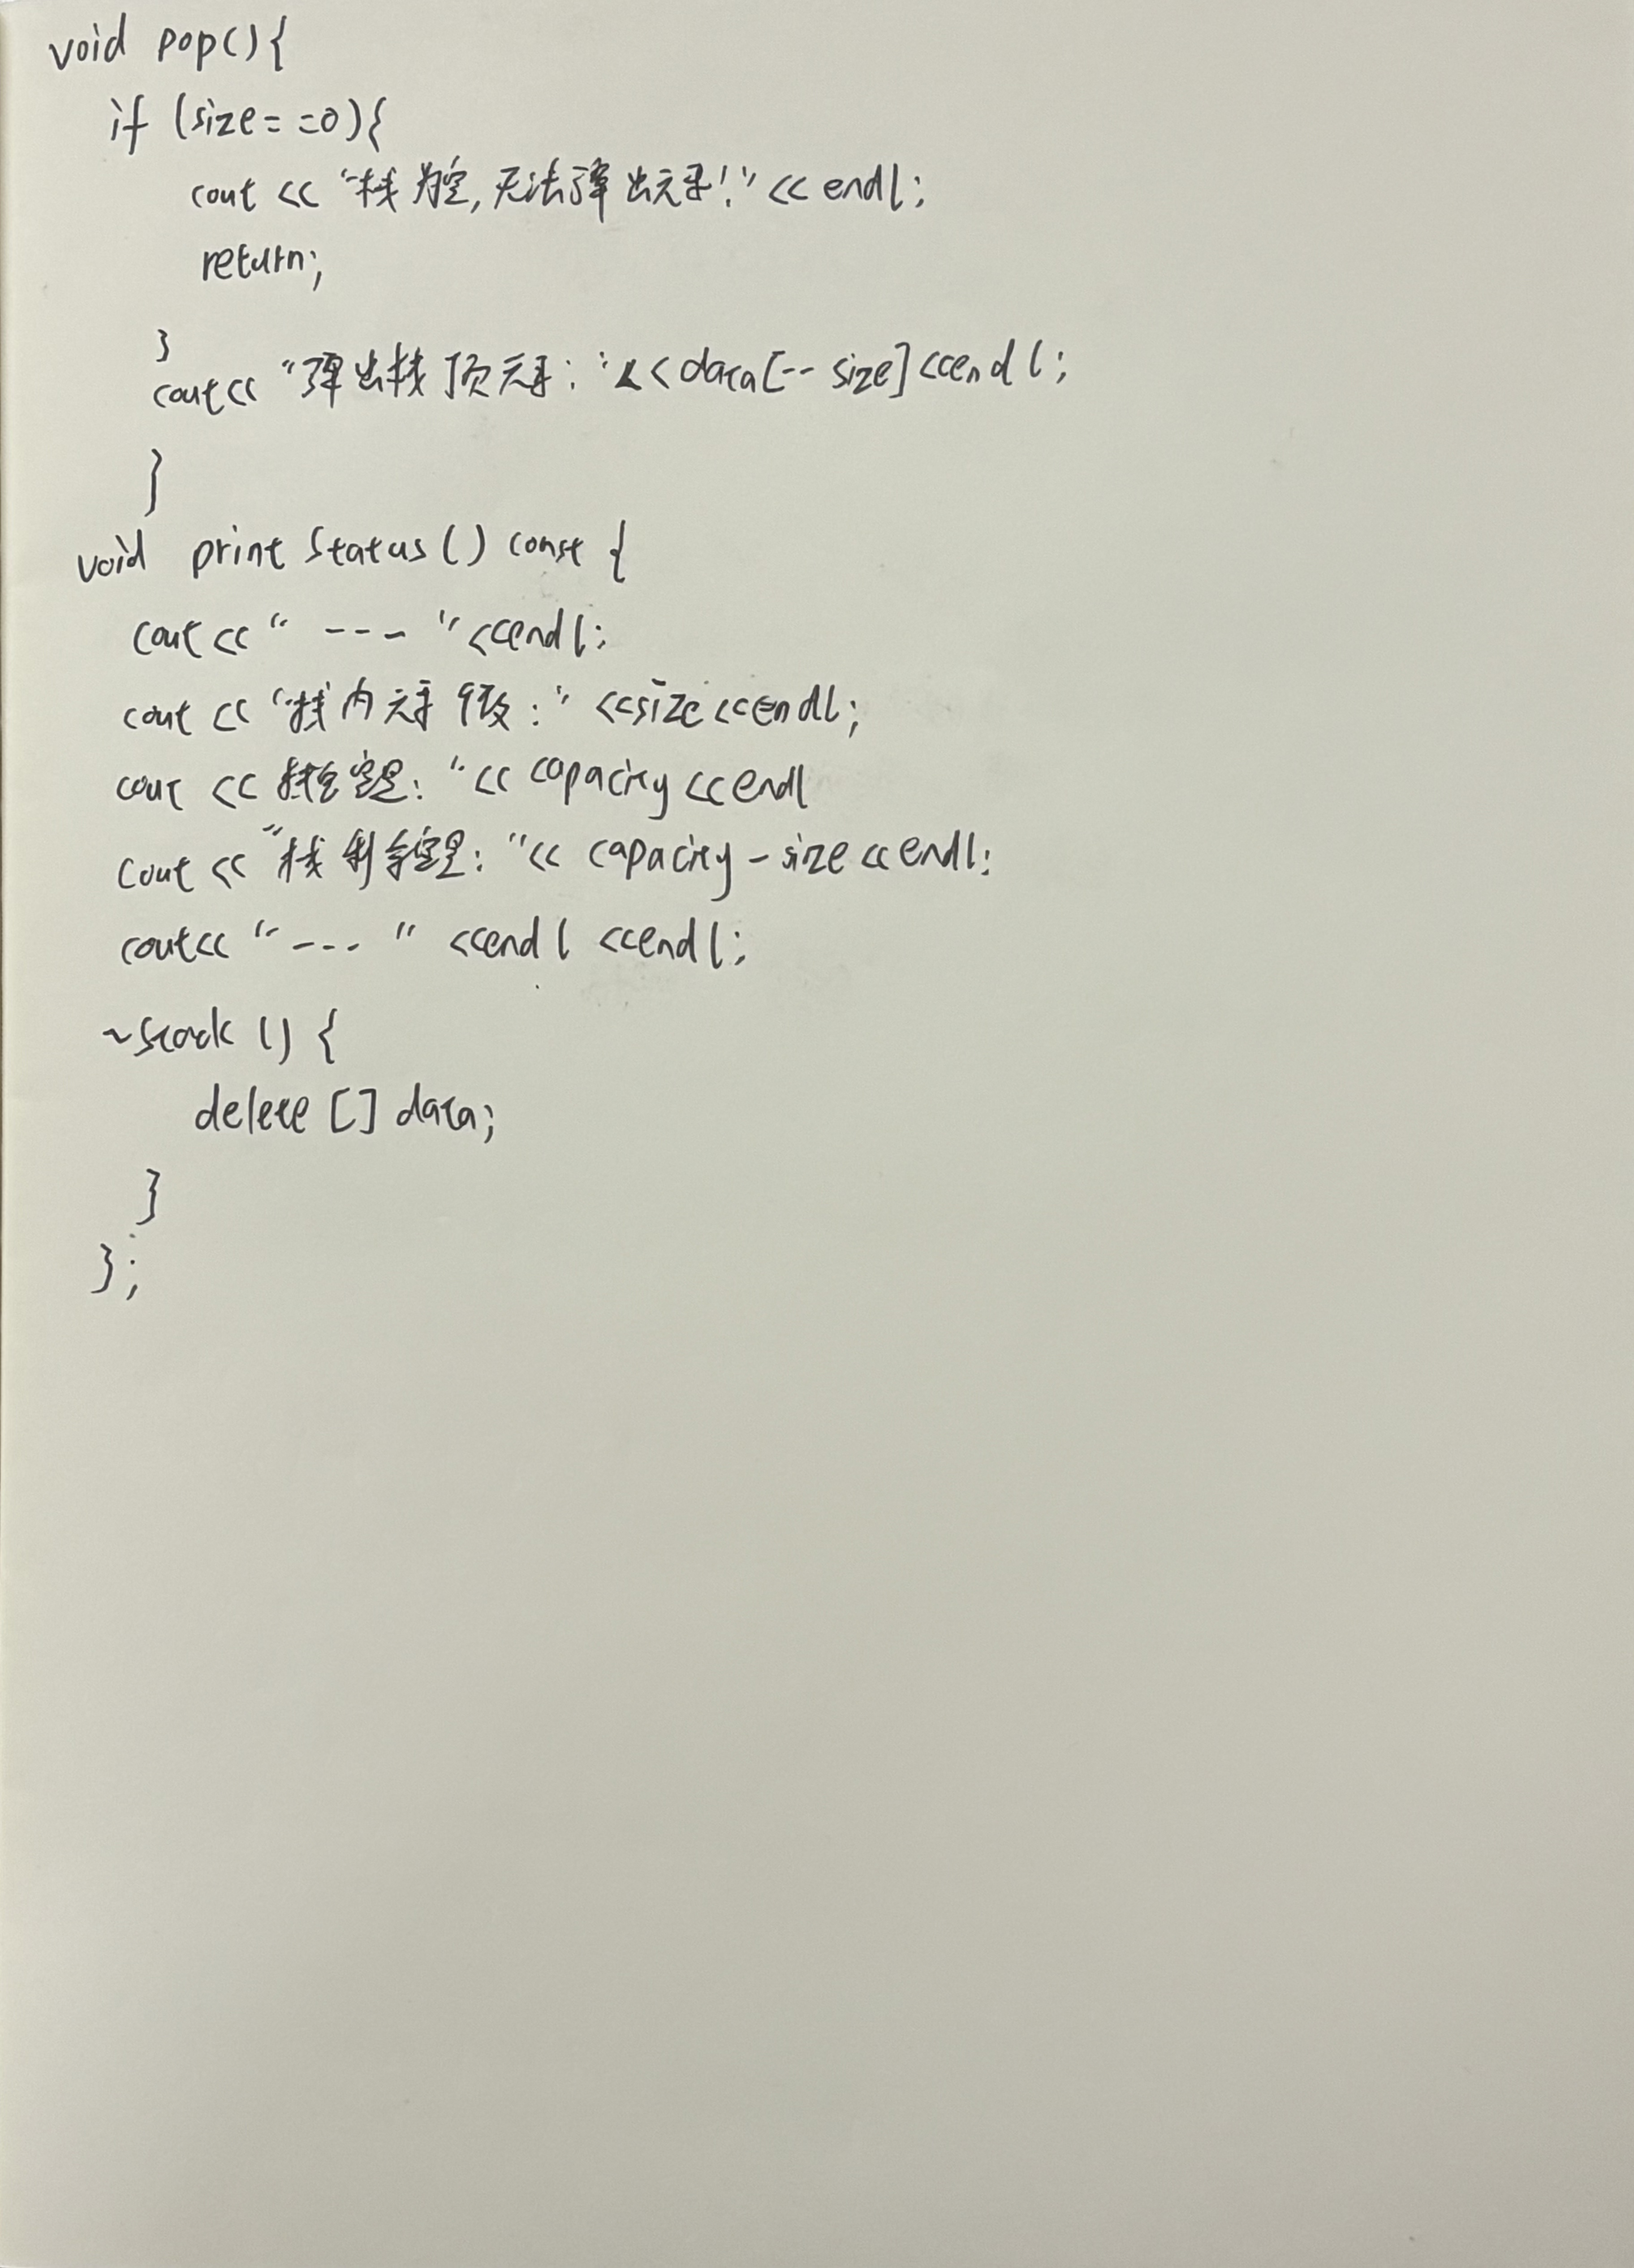 void pop(){
if (size==0){
cout << "栈为空,无法弹出元素!"<<endl;
return;
}
cout<< "弹出栈顶元素:"<<data[--size]<<endl;
}
void printStatus() const {
cout<<" --- "<<endl;
cout << "栈内元素个数:" <<size<<endl;
cout << 栈总容量:"<< capacity<<endl
cout << "栈剩余容量:"<< capacity-size<<endl;
cout<< "--- " <<endl <<endl;
~stack () {
delete [] data;
}
};